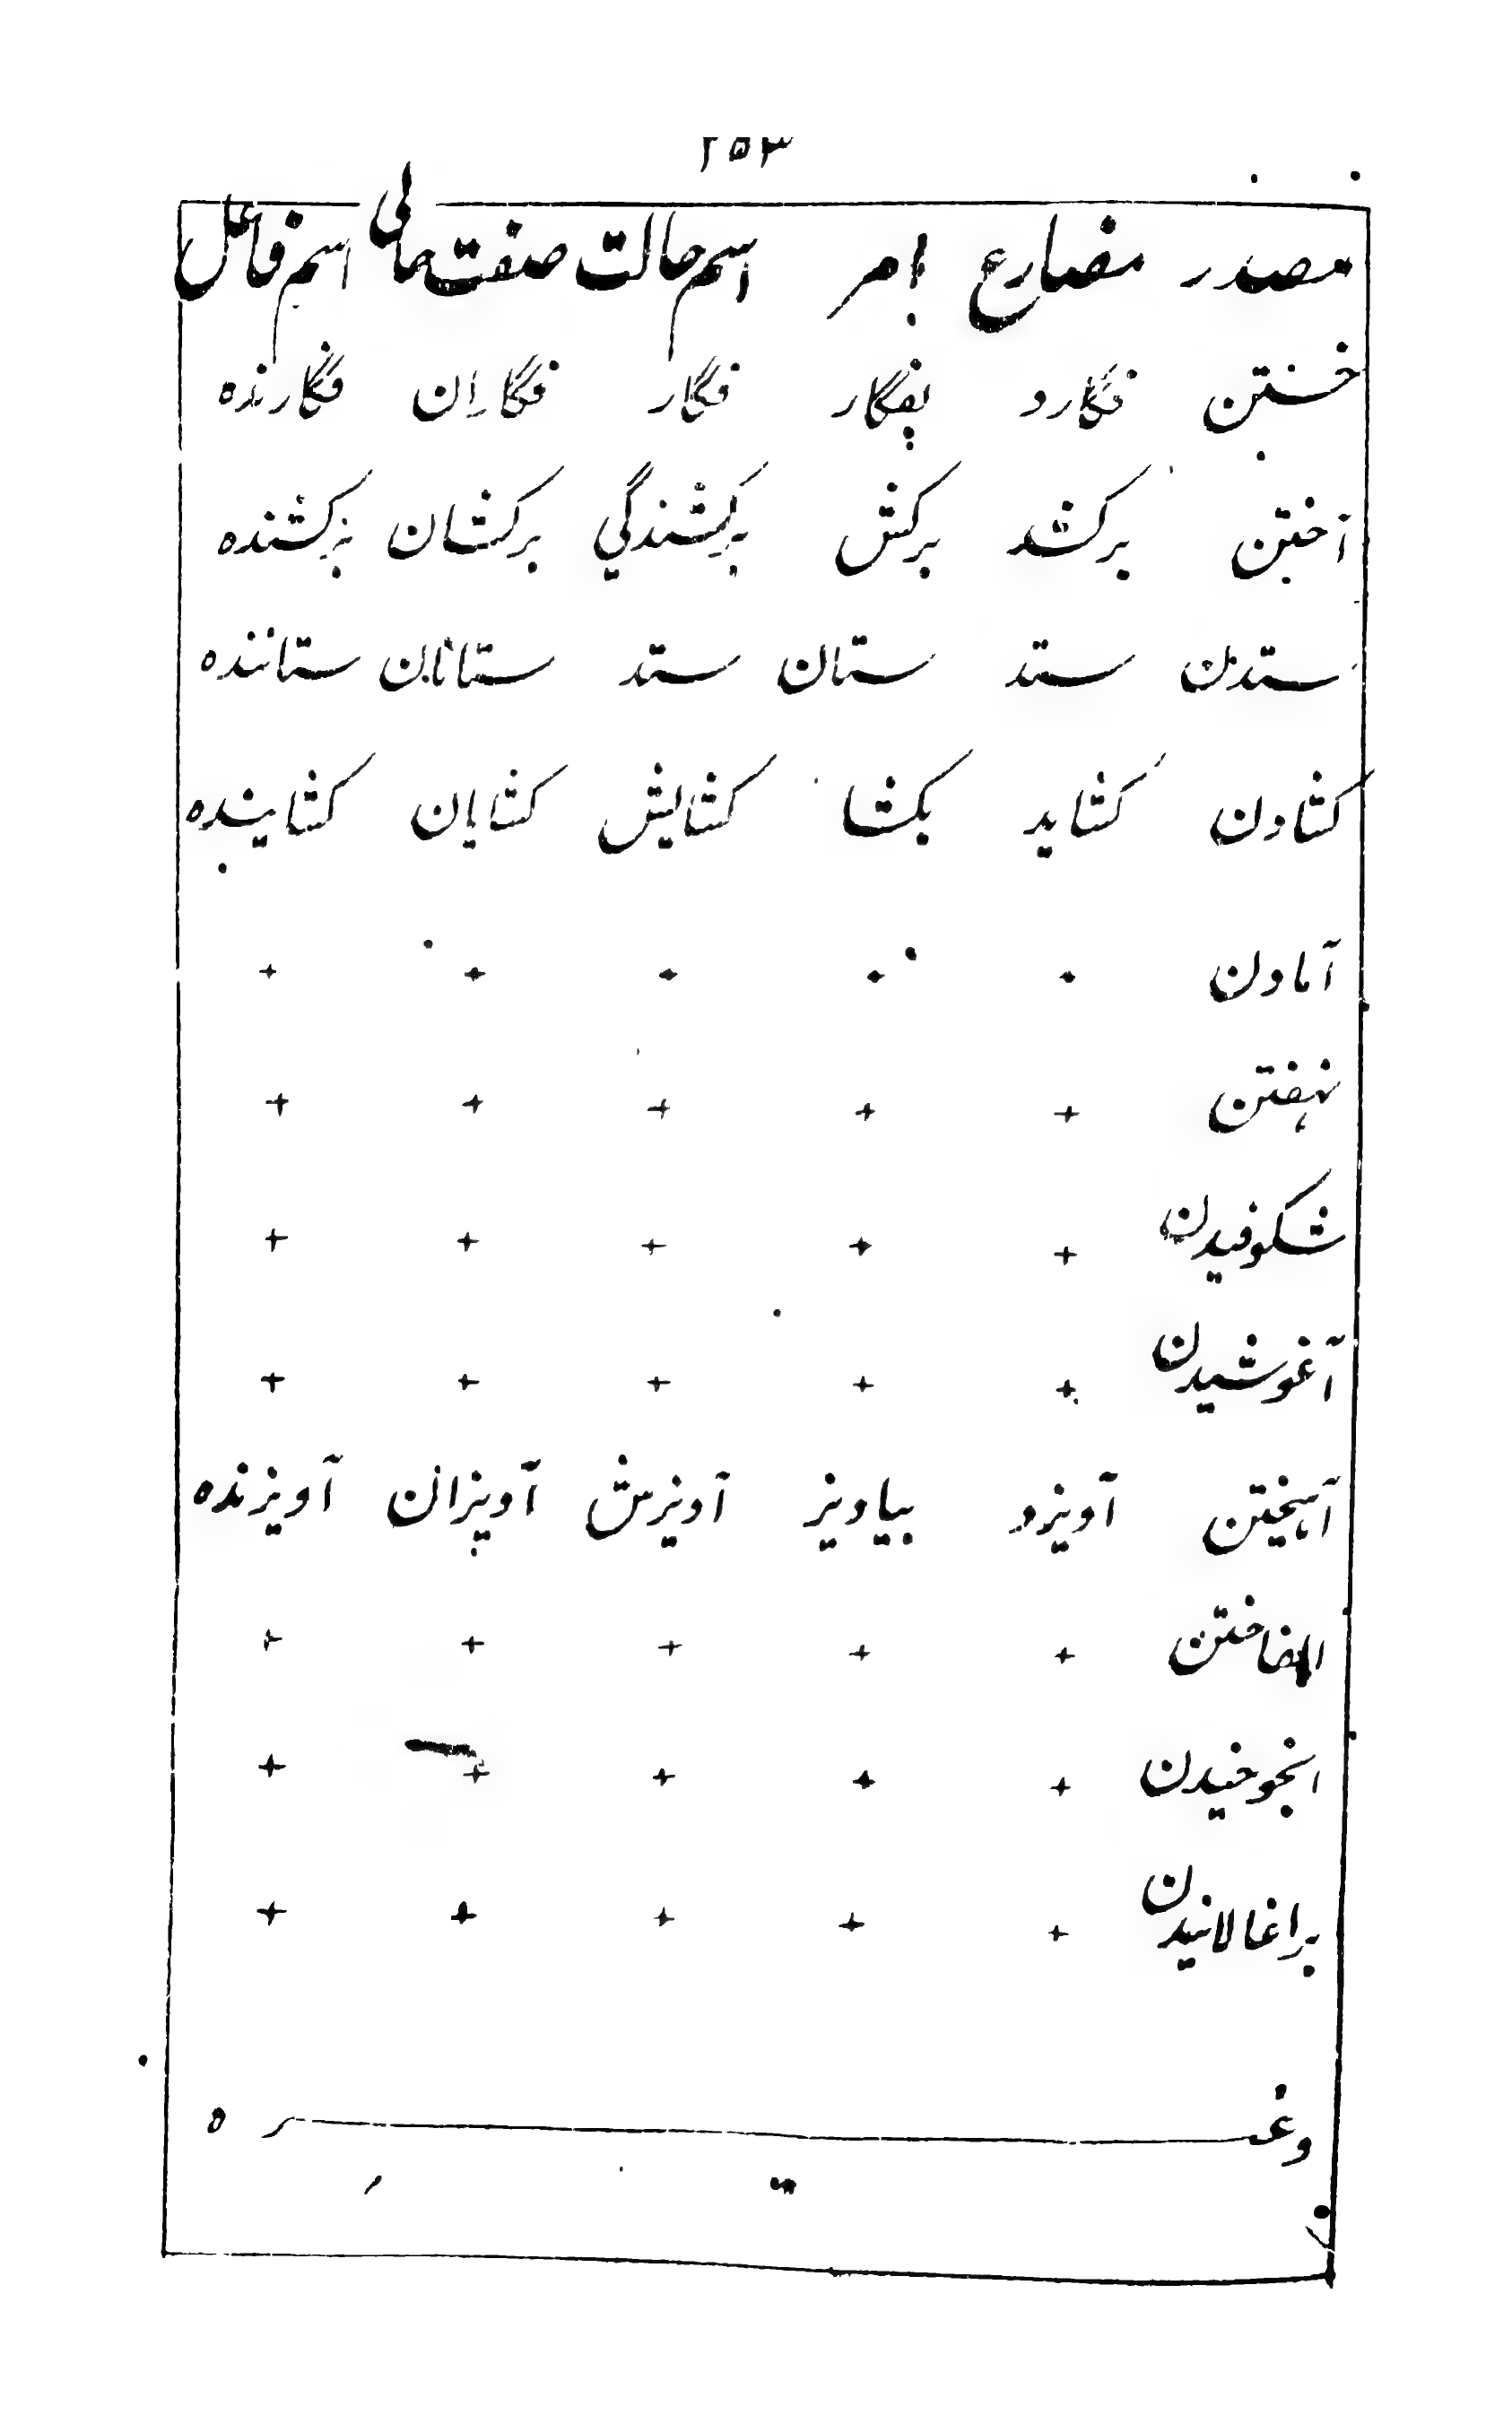 ٢٥٣
مصدر مضارع امر اسم حالت صفت حالی اسم فاعل
خستن فگارد بفگار فگار فگاران فگارنده
آختن برکشد برکش برکشندگي برکشان برکشنده
ستدن ستد ستان ستد ستانان ستاننده
کشادن کشاید بکشا کشایش کشایان کشاینده
آمادن · · · + +
نهفتن + + + + +
شکوفیدن + + + + +
آغوشیدن + + + + +
آہیختن آویزد بیاویز آویزش آویزان آویزنده
الفاختن + + + + +
انجوخیدن + + + + +
براغالانیدن + + + + +
وغیره